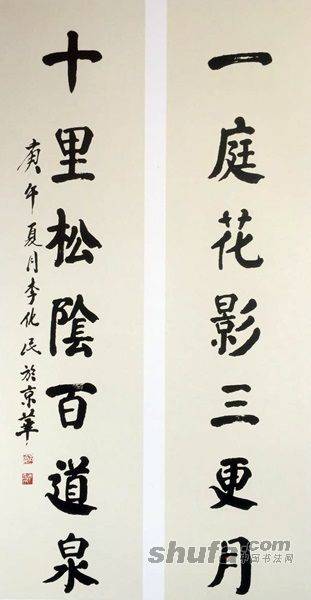 一庭花影三更月
十里松陰百道泉
庚午夏月李化民於京華
shufa.com
中国书法网